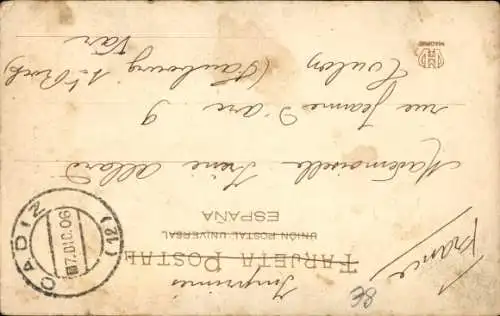 TARJETA POSTAL
UNIÓN POSTAL UNIVERSAL
ESPAÑA
Imprimés
France
Mademoiselle Irène Allard
9 rue Jeanne d'arc
(Faubourg St Roch)
Toulon
Var
CADIZ
7.DIC.06
(12)